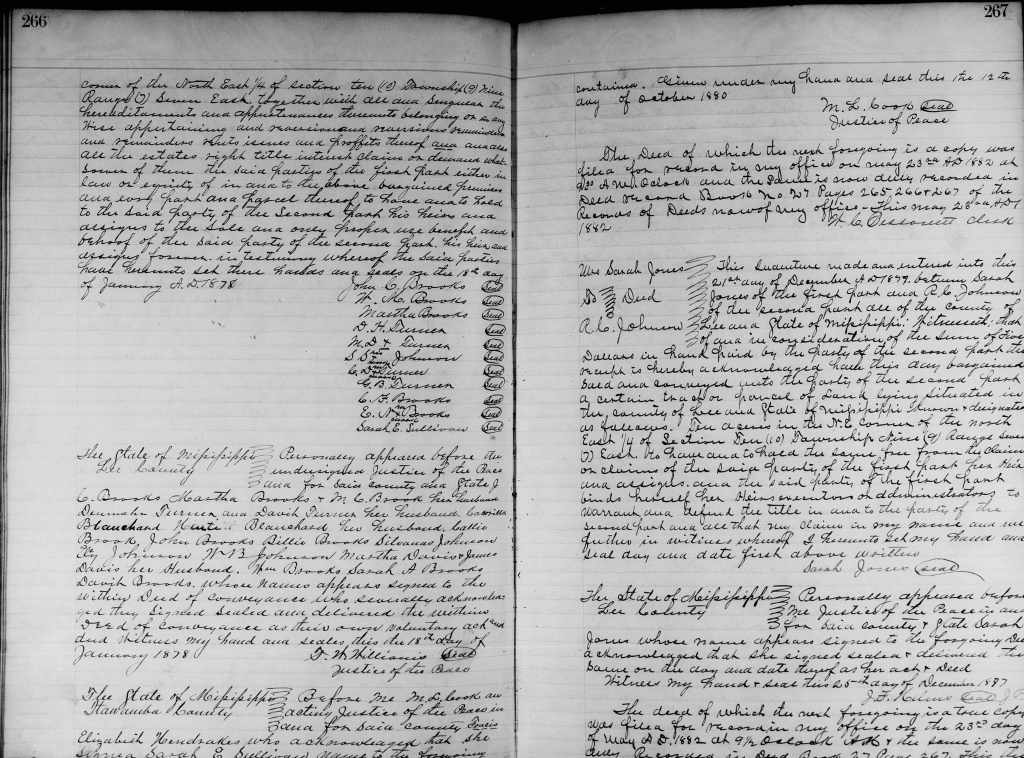 266
corner of the North East 1/4 of section ten (10) Township (9) Nine
Range (7) Seven East together with all and singular the
hereditaments and appurtenances thereunto belonging or in any
wise appertaining and reversion and reversions remainder
and remainders rents issues and proffits thereof and also
all the estates right title interest claim or demand what
soever of them the said parties of the first part either in
law or equity of in and to the above bargained premises
and every part and parcel thereof to have and to hold
to the said party of the second part his heirs and
assigns to the sole and only proper use benefit and
behoof of the said party of the second part his heirs and
assigns forever. in testimony whereof the said parties
have hereunto set there hands and seals on the 18th day
of January A.D. 1878 John C. Brooks Seal
W. M. Brooks Seal
Martha Brooks Seal
D. H. Turner Seal
M. D. x Turner Seal
S. D. Johnson Seal
C. D. x Turner Seal
G. B. Turner Seal
C. F. Brooks Seal
E. N. x Brooks Seal
Sarah E. Sullivan Seal
The State of Mississippi Personally appeared before the
Lee County undersigned Justice of the Peace
and for said county and State J
C. Brooks Martha Brooks & M. C. Brook her husband
Turner and David Turner her husband
Blanchard Blanchard her husband Callie
Brook, John Brooks Billie Brooks Silvanus Johnson
Johnson W B Johnson Martha Davis & James
Davis her Husband, Wm Brooks Sarah A Brooks
David Brooks. whose names appears signed to the
within Deed of Conveyance who severally acknowled
ged they signed sealed and delivered the within
Deed of conveyance as their own voluntary act and
deed Witness my hand and seales this the 18th day of
January 1878 F. W. Williams Seal
Justice of the Peace
The State of Mississippi Before me M. L. Cook an
Itawamba County acting Justice of the Peace in
and for said County
Elizabeth Hendrakes who acknowledged that she
signed Sarah E Sullivan name to the forgoing
267
contained. Given under my hand and seal this the 12th
day of October 1880
M. L. Cook Seal
Justice of Peace
The Deed of which the next foregoing is a copy was
filed for record in my office on may 23rd AD 1882 at
A.M. Oclock and the same is now duly recorded in
Deed record Book No 27 Pages 265, 266 & 267 of the
Records of Deeds now of my office - This may 23rd A.D.
1882 W. C. Clerk
Mrs Sarah Jones This Indenture made and entered into this
21st day of December AD 1877. between Sarah
To Deed Jones of the first part and R. C. Johnson
of the second part all of the county of
R. C. Johnson Lee and State of Mississippi: Witnesseth; that
of and in consideration of the sum of Five
Dollars in hand paid by the party of the second part the
receipt is hereby acknowledged have this day bargained
Sold and conveyed unto the party of the second part
a certain tract or parcel of Land lying situated in
the county of Lee and State of Mississippi known & designated
as follows. Ten acres in the N.E. corner of the north
East 1/4 of Section Ten (10) Township Nine (9) Range Seven
(7) East. To have and to hold the same free from the claim
or claims of the said party of the first part her Heirs
and assigns. and the said party of the first part
binds herself her Heirs executors or administrators to
warrant and defend the title in and to the party of the
second part and all that my claim in my name and
further in witness whereof I hereunto set my hand and
seal day and date first above written
Sarah Jones seal
The State of Mississippi Personally appeared before
Lee County me Justice of the Peace in and
for said county & State Sarah
Jones whose name appears signed to the forgoing Deed
acknowledged that she signed sealed & delivered the
same on the day and date thereof as her act & Deed
Witness my hand & seal this 25th day of December 1877
J. F. Seal J P
The deed of which the next foregoing is a true copy
was filed for record in my office on the 23rd day
of May A.D. 1882 at 9 1/2 Oclock A.M & the same is now
duly Recorded in Deed Book 27 Page 267. This the